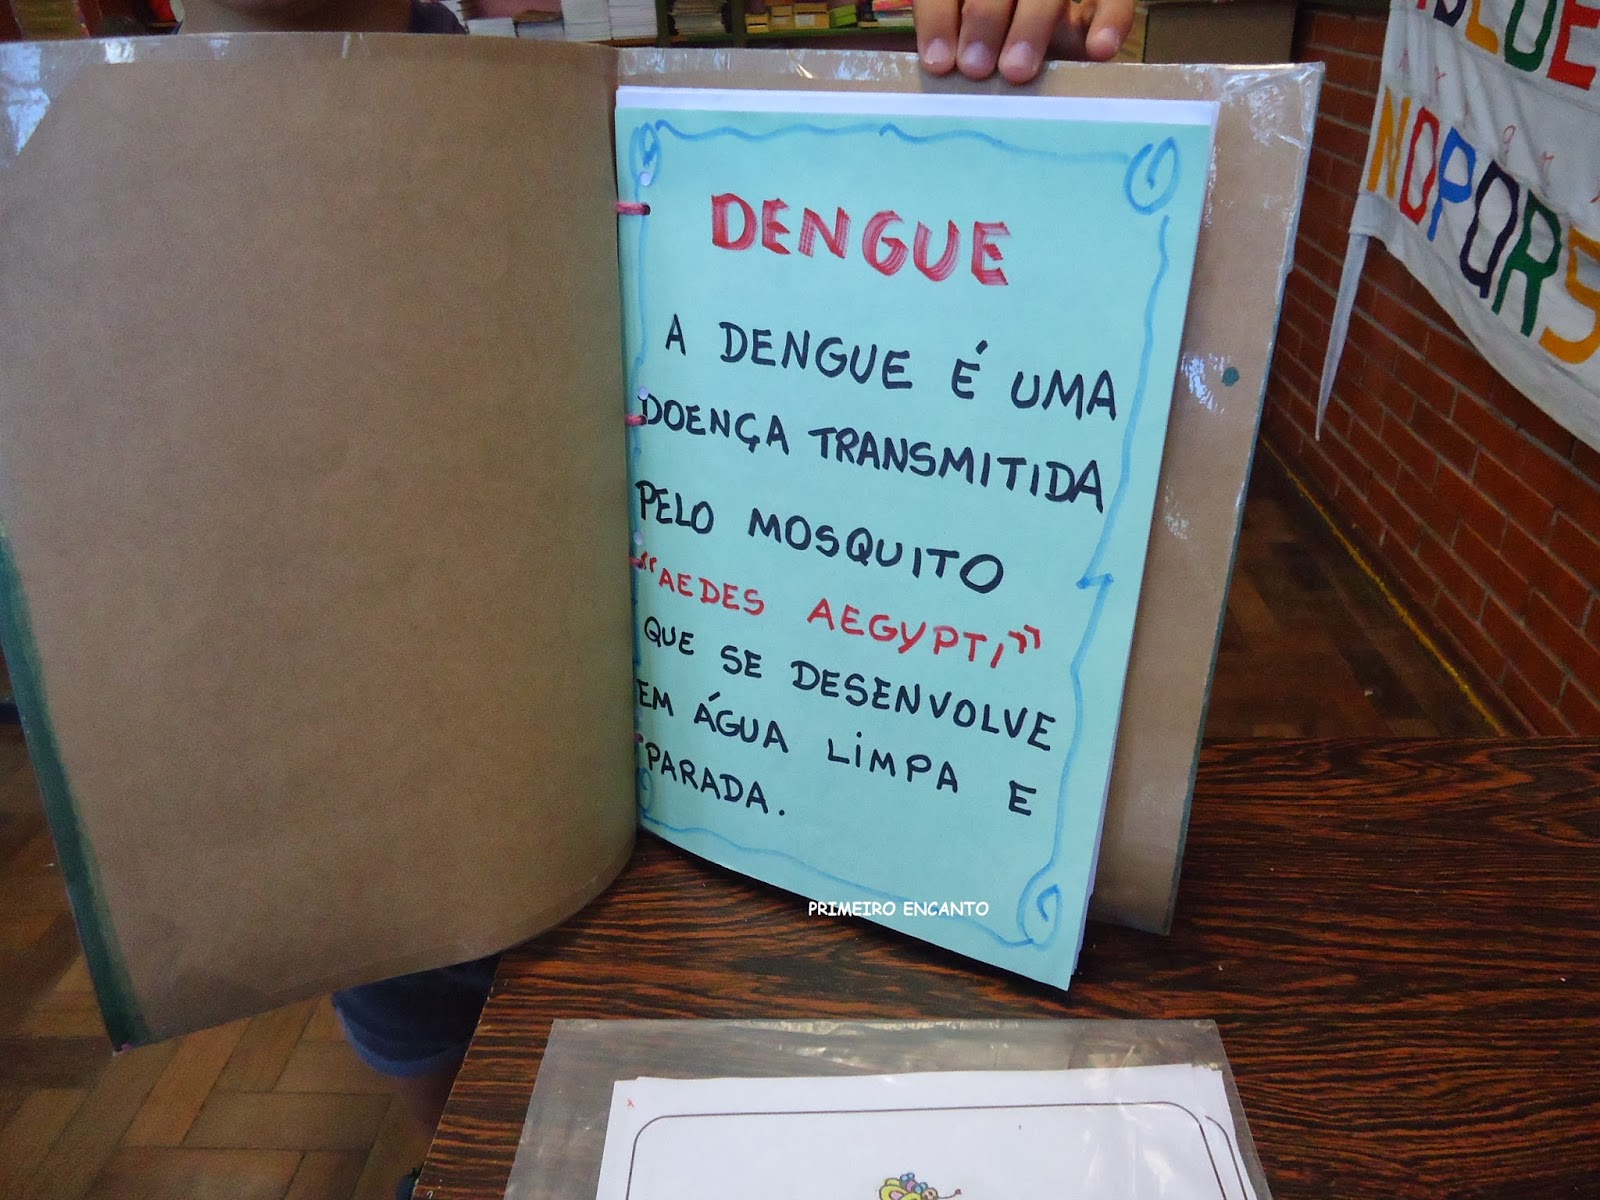 DENGUE
A DENGUE É UMA
DOENÇA TRANSMITIDA
PELO MOSQUITO
"AEDES AEGYPTI"
QUE SE DESENVOLVE
EM ÁGUA LIMPA E
PARADA.
PRIMEIRO ENCANTO
NOPQRS